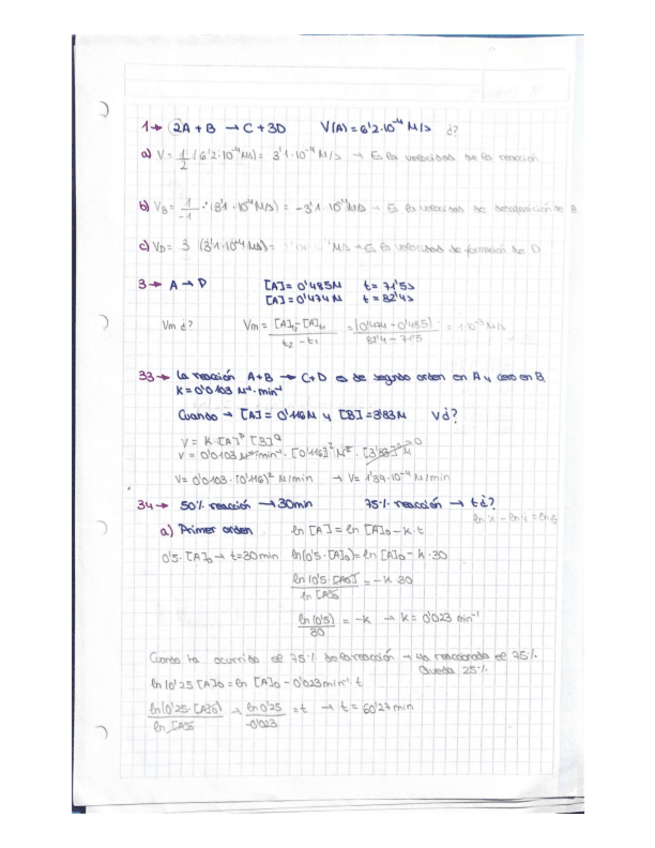 1→ 2A + B → C + 3D V(A) = 6'2·10⁻⁴ M/s ¿?
a) V = 1/2 (6'2·10⁻⁴ M/s) = 3'1·10⁻⁴ M/s → Es la velocidad de la reacción
b) V_B = 1/-1 · (3'1·10⁻⁴ M/s) = -3'1·10⁻⁴ M/s → Es la velocidad de desaparición de B
c) V_D = 3 (3'1·10⁻⁴ M/s) = M/s → Es la velocidad de formación de D
3→ A → D [A] = 0'485M t = 71'5s
[A] = 0'474M t = 82'4s
Vm ¿? Vm = [A]t₂-[A]t₁ / t₂-t₁ = (0'474-0'485) / 82'4-71'5 = 1·10⁻³ M/s
33→ La reacción A+B → C+D es de segundo orden en A y cero en B.
K = 0'0103 M⁻¹·min⁻¹
Cuando → [A] = 0'116M y [B] = 3'83M V ¿?
V = K·[A]² [B]⁰
V = 0'0103 M⁻¹min⁻¹ · [0'116]² M² · [3'83]⁰ M 0
V = 0'0103·(0'116)² M/min → V = 1'39·10⁻⁴ M/min
34→ 50% reacción → 30min 75% reacción → t ¿?
ln x - ln y = ln
a) Primer orden ln [A] = ln [A]₀ - K·t
0'5·[A]₀ → t = 30min ln(0'5·[A]₀) = ln [A]₀ - K·30
ln(0'5·[A]₀) / ln [A]₀ = -K·30
ln(0'5) / 30 = -K → K = 0'023 min⁻¹
Cuando ha ocurrido el 75% de la reacción → ya reaccionado el 75%
Queda 25%
ln(0'25 [A]₀ = ln [A]₀ - 0'023min⁻¹·t
ln(0'25·[A]₀) / ln [A]₀ → ln 0'25 / -0'023 = t → t = 60'27 min